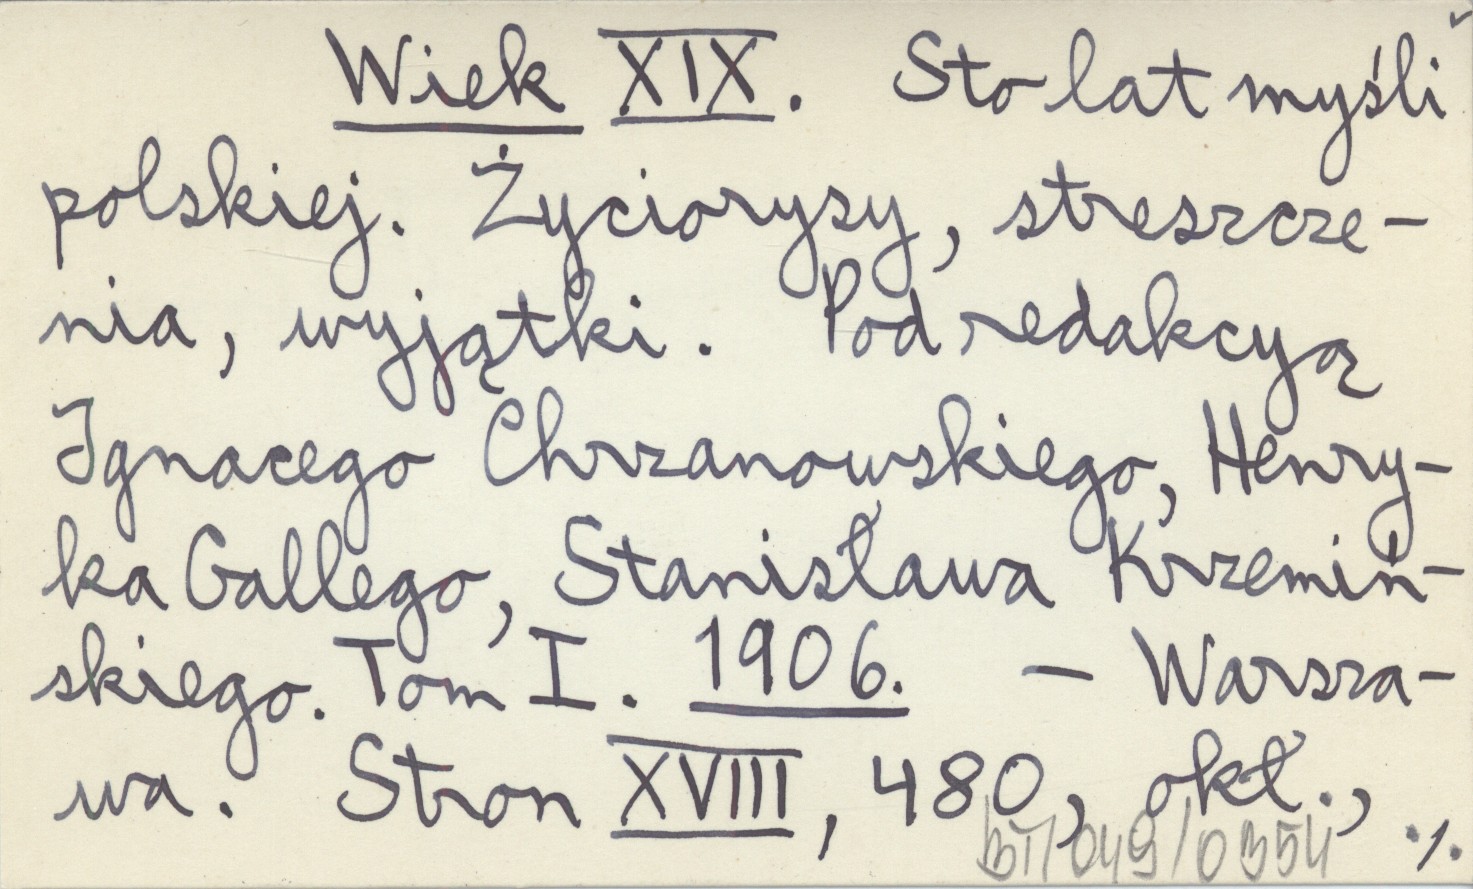 Wiek XIX. Sto lat myśli
polskiej. Życiorysy, streszcze-
nia, wyjątki. Pod redakcyą
Ignacego Chrzanowskiego, Henry-
ka Gallego, Stanisława Krzemiń-
skiego. Tom I. 1906. - Warsza-
wa. Stron XVIII, 480, okł.,
BT/049/0354 ./.